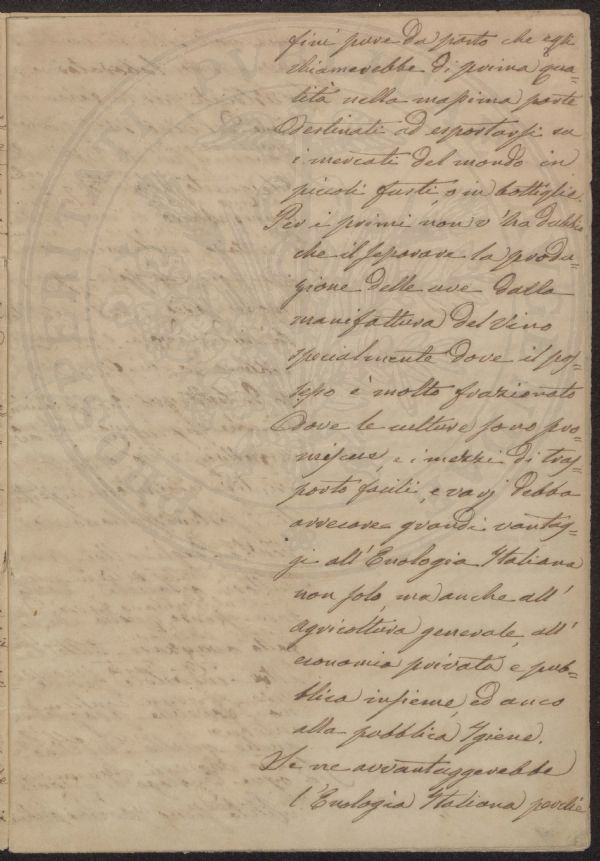 fini pure da pasto che egli
chiamerebbe di prima qua-
lità nella massima parte
destinati ad esportarsi su
i mercati del mondo in
piccoli fusti, o in bottiglie.
Per i primi non v'ha dubbio
che il separare la produ-
zione delle uve dalla
manifattura del Vino
specialmente dove il pos-
sesso è molto frazionato
dove le culture sono pro-
miscue, e i mezzi di tras-
porto facili, e varj debba
arrecare grandi vantag-
gi all'Enologia Italiana
non solo, ma anche all'
agricoltura generale, all'
economia privata, e pub-
blica insieme, ed anco
alla pubblica Igiene.
Se ne avvantaggerebbe
l'Enologia Italiana perchè